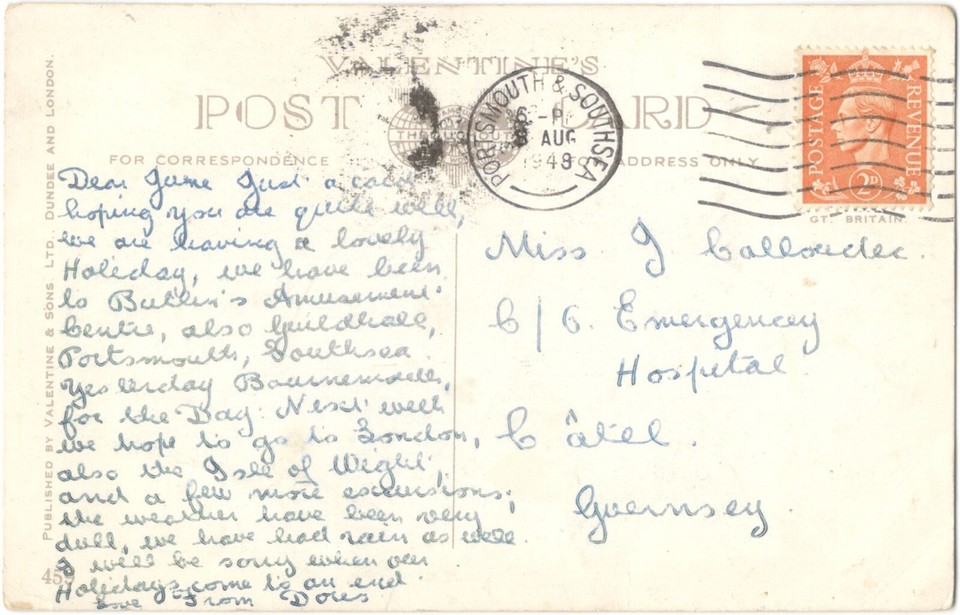 VALENTINE'S
POST CARD
FOR CORRESPONDENCE
ADDRESS ONLY
PORTSMOUTH & SOUTHSEA
8 AUG
1948
POSTAGE REVENUE
2D
GT. BRITAIN.
PUBLISHED BY VALENTINE & SONS. LTD., DUNDEE AND LONDON.
Dear June Just a card
hoping you are quite well,
we are having a lovely
Holiday, we have been
to Butlin's Amusement
Centre, also Guildhall,
Portsmouth, Southsea.
Yesterday Bournemouth,
for the Day. Next week
we hope to go to London,
also the Isle of Wight,
and a few more excursions,
the weather have been very
dull, we have had rain as well.
I will be sorry when our
Holidays come to an end.
Love From Doris
Miss J
C/O. Emergency
Hospital
Câtel.
Guernsey